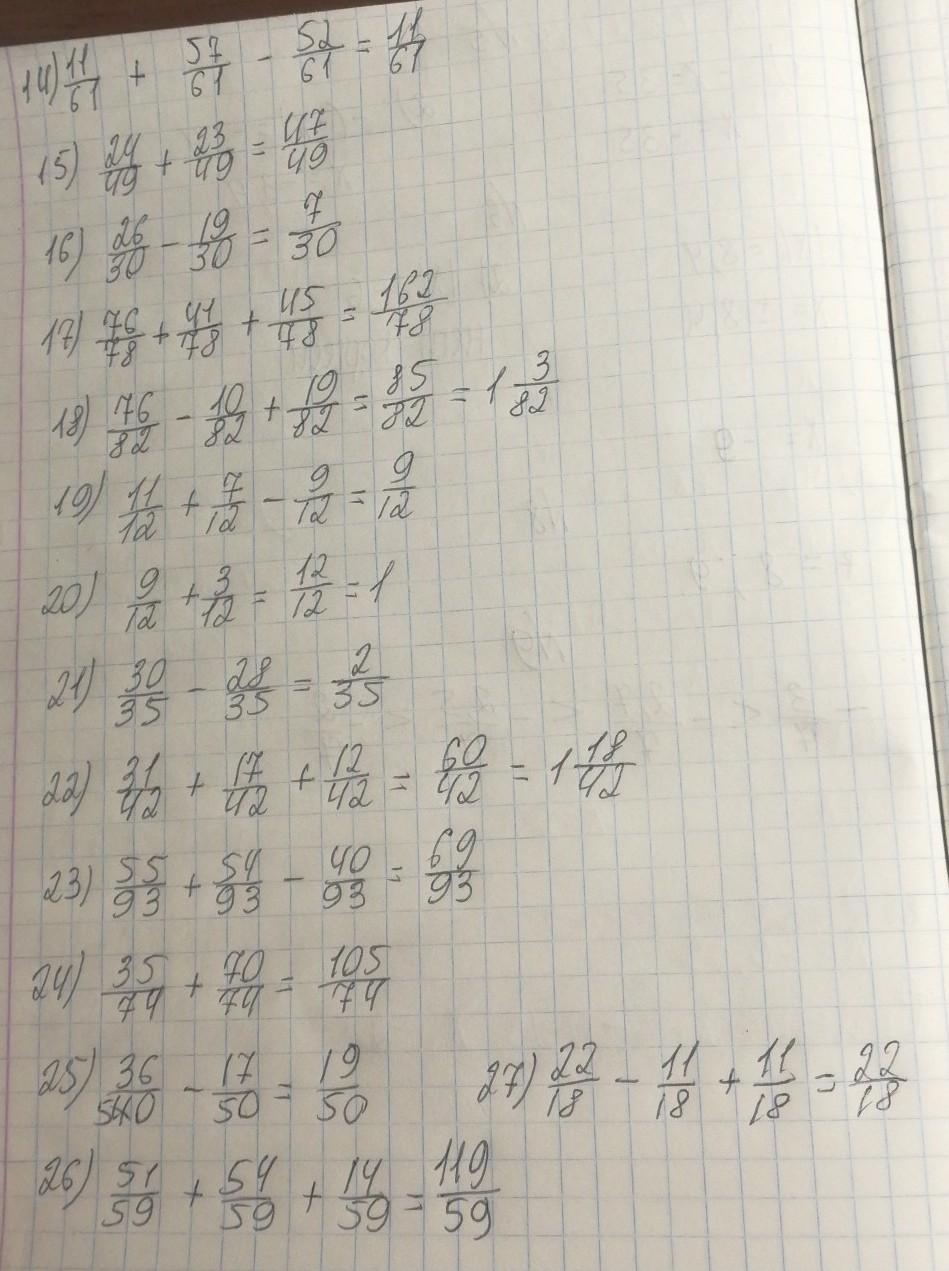 14) 11/61 + 57/61 - 52/61 = 11/61
15) 24/49 + 23/49 = 47/49
16) 26/30 - 19/30 = 7/30
17) 76/78 + 41/78 + 45/78 = 162/78
18) 76/82 - 10/82 + 19/82 = 85/82 = 1 3/82
19) 11/12 + 7/12 - 9/12 = 9/12
20) 9/12 + 3/12 = 12/12 = 1
21) 30/35 - 28/35 = 2/35
22) 31/42 + 17/42 + 12/42 = 60/42 = 1 18/42
23) 55/93 + 54/93 - 40/93 = 69/93
24) 35/74 + 70/74 = 105/74
25) 36/50 - 17/50 = 19/50
27) 22/18 - 11/18 + 11/18 = 22/18
26) 51/59 + 54/59 + 14/59 = 119/59